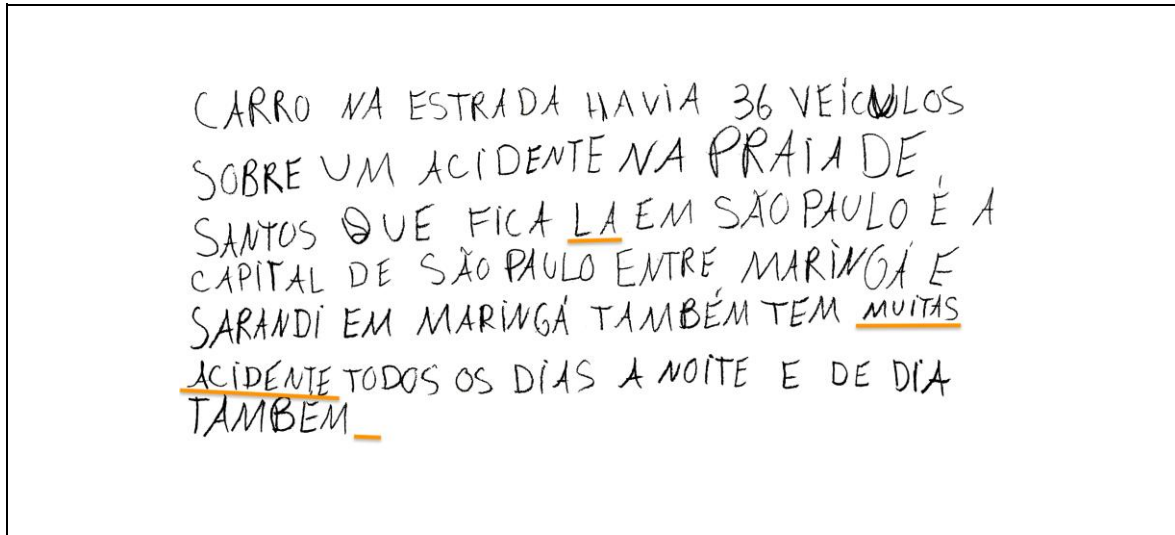 CARRO NA ESTRADA HAVIA 36 VEÍCULOS
SOBRE UM ACIDENTE NA PRAIA DE
SANTOS QUE FICA LA EM SÃO PAULO É A
CAPITAL DE SÃO PAULO ENTRE MARINGÁ E
SARANDI EM MARINGÁ TAMBÉM TEM MUITAS
ACIDENTE TODOS OS DIAS A NOITE E DE DIA
TAMBÉM